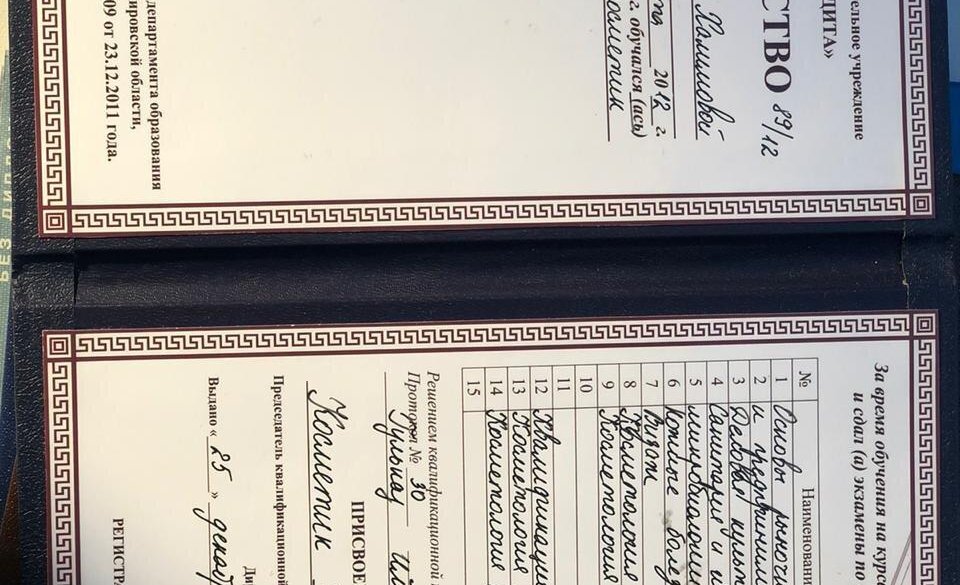 тельное учреждение
ЩИТА»
СТВО 89/12
Халиловой
2012 г.
г. обучался (ась)
косметик
департамента образования
ировской области,
09 от 23.12.2011 года.
БЕЗ
За время обучения на кур
и сдал (а) экзамены по
№ Наименовани
1 Основы рыночн
2 и предприни
3 Деловая культ
4 Санитария и
5
6 Кожные боле
7
8 Косметология
9 Косметология
10
11
12 Квалификаци
13 Косметология
14 Косметология
15
Решением квалификационной
Протокол № 30
Косметик
ПРИСВОЕ
Председатель квалификационной
Ди
Выдано « 25 » декаб
РЕГИСТРА